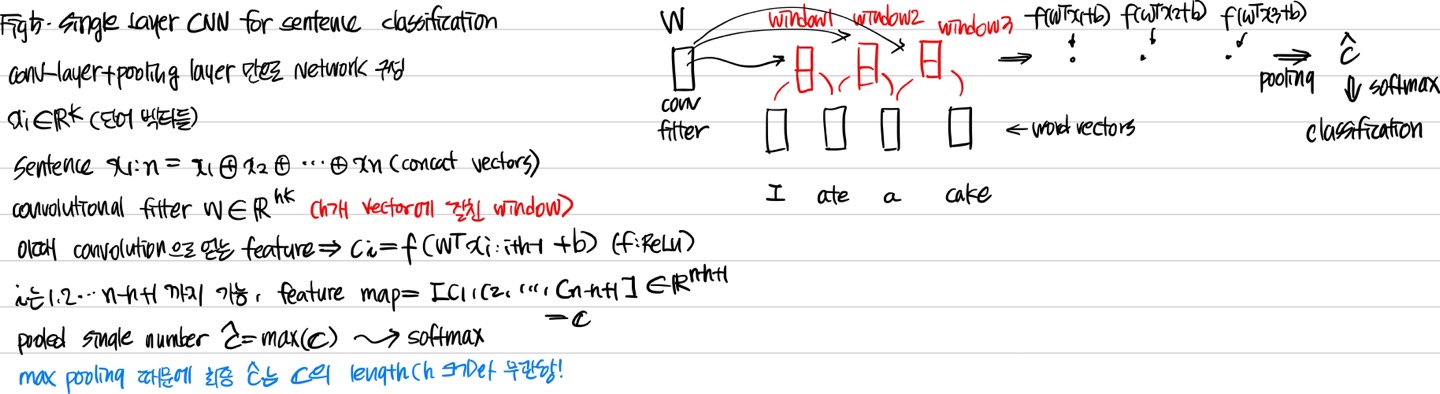 Single Layer CNN for sentence classification
conv-layer+pooling layer 만으로 Network 구성
xi∈ℝᵏ (단어 벡터들)
Sentence x1:n = x1⊕x2⊕ ⋯ ⊕xn (concat vectors)
convolutional filter W∈ℝʰᵏ (h개 vector에 걸친 window)
이때 convolution으로 얻는 feature ⇒ ci = f(WᵀXi:i+h-1 +b) (f:ReLU)
i는 1,2⋯ n-h+1 까지 가능, feature map= [C1, C2, ..., Cn-h+1] ∈ℝⁿ⁻ʰ⁺¹
= C
pooled single number ĉ=max(C) ⇝ softmax
max pooling 때문에 최종 ĉ는 C의 length(h 크기)와 무관함!
W
conv
filter
window1 window2 window3
→ f(WᵀX1+b) f(WᵀX2+b) f(WᵀX3+b)
⇒ ĉ
pooling
⇓ softmax
classification
← word vectors
I ate a cake